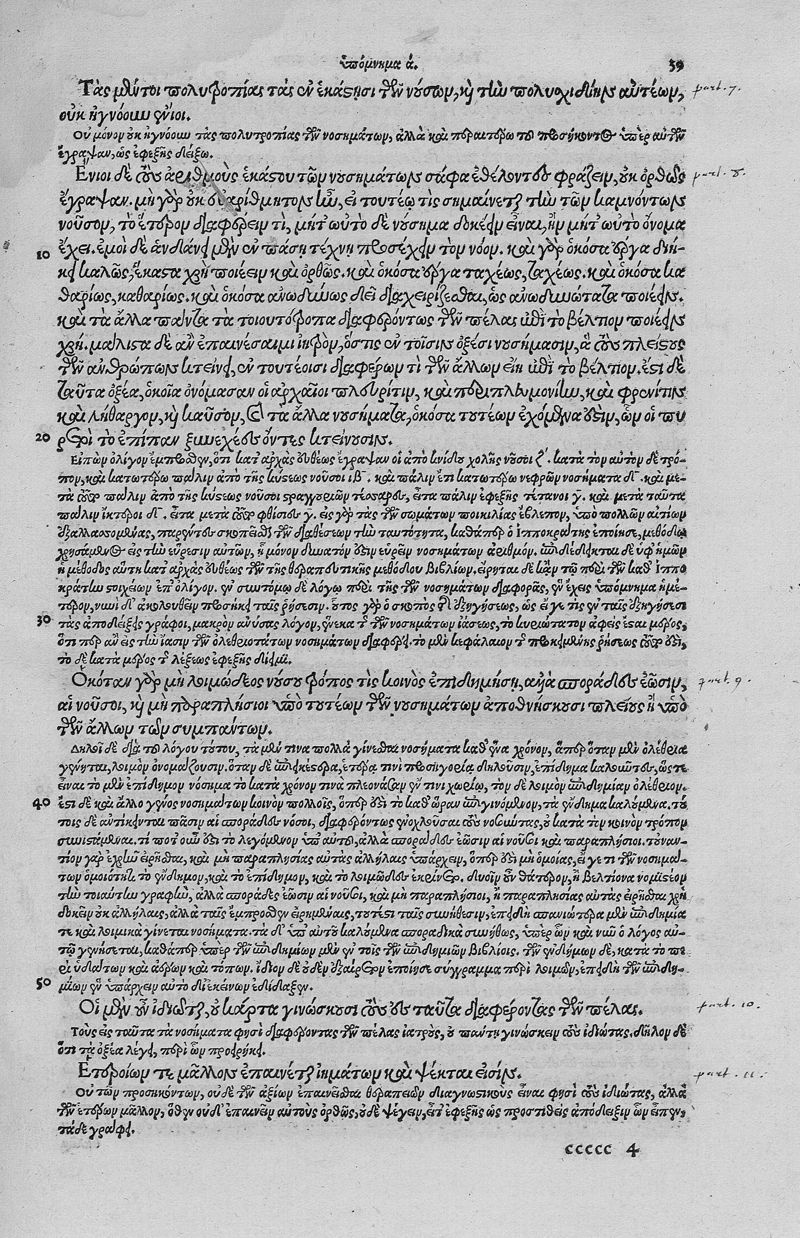 ὑπόμνημα ά. 39
Τὰς μέντοι πολυτροπίας τὰς ἐν ἑκάστῃσι τῶν νούσων, καὶ τὴν πολυσχιδίην αὐτέων, part. 7.
οὐκ ἠγνόουν ἔνιοι.
Οὐ μόνον οὐκ ἠγνόουν τὰς πολυτροπίας τῶν νοσημάτων, ἀλλὰ καὶ περαιτέρω τοῦ προσήκοντος ὑπὲρ αὐτῶν
ἔγραψαν, ὡς ἐφεξῆς δείξω.
Ενιοι δὲ τοὺς ἀριθμοὺς ἑκάστου τῶν νουσημάτων σάφα ἐθέλοντες φράζειν, οὐκ ὀρθῶς part. 8.
ἔγραψαν. μὴ γὰρ οὐκ εὐαρίθμητον ᾖ, εἰ τουτέῳ τὶς σημαίνεται τὴν τῶν καμνόντων
νοῦσον, τὸ ἕτερον διαφέρειν τὶ, μὴ τωὐτὸ δὲ νούσημα δοκέει εἶναι, ἢν μὴ τωὐτὸ ὄνομα
10 ἔχει. ἐμοὶ δὲ ἁνδάνει μὲν ἐν πάσῃ τέχνῃ προσέχειν τὸν νόον. καὶ γὰρ ὁκόσα ἔργα δοκ-
κεῖ καλῶς, ἕκαστα χρὴ ποιέειν καὶ ὀρθῶς. καὶ ὁκόσα ἔργα ταχέως, ταχέως. καὶ ὁκόσα κα
θαρίως, καθαρίως. καὶ ὁκόσα ἀνωδύνως δεῖ διαχειρίζεσθαι, ὡς ἀνωδυνώτατα ποιέειν.
καὶ τὰ ἄλλα πάντα τὰ τοιουτότροπα διαφερόντως τῶν πέλας ἐπὶ τὸ βέλτιον ποιέειν
χρή. μάλιστα δὲ ἂν ἐπαινέσαιμι ἰητρὸν, ὅστις ἐν τοῖσιν ὀξέσι νουσήμασιν, ἃ τοὺς πλείστους
τῶν ἀνθρώπων κτείνει, ἐν τουτέοισι διαφέρων τὶ τῶν ἄλλων εἴη ἐπὶ τὸ βέλτιον. ἔστι δὲ
ταῦτα ὀξέα, ὁκοῖα ὀνόμασαν οἱ ἀρχαῖοι πλευρίτιν, καὶ περιπλευμονίην, καὶ φρενίτιν
καὶ λήθαργον, καὶ καῦσον, καὶ τὰ ἄλλα νουσήματα, ὁκόσα τουτέων ἐχόμενα ἐστιν, ὧν οἱ πυ
20 ρετοὶ τὸ ἐπίπαν ξυνεχέες ὄντες κτείνουσιν.
Εἶπον ὀλίγον ἔμπροσθεν, ὅτι κατ' ἀρχὰς εὐθέως ἔγραψαν οἱ ἀπὸ κνίδου χολῆς νοῦσοι ζ΄. κατὰ τὸν αὐτὸν δὲ τρό-
πον, καὶ κατωτέρω πάλιν ἀπὸ τῆς κύστεως νοῦσοι ιβ΄. καὶ πάλιν ἔτι κατωτέρω νεφρῶν νοσήματα δ΄. καὶ με-
τὰ τοῦτο πάλιν ἀπὸ τῆς κύστεως νοῦσοι στραγγουριῶν τέσσαρες, εἶτα πάλιν ἐφεξῆς τέτανοι γ. καὶ μετὰ ταῦτα
πάλιν ἴκτεροι δ΄. εἶτα μετὰ τοῦτο φθίσεις γ. εἰς γὰρ τὰς τῶν σωμάτων ποικιλίας ἔβλεπον, ὑπὸ πολλῶν αἰτίων
ἐξαλλασσομένας, παρέντες σκοπεῖσθαι τῶν διαθέσεων τὴν ταυτότητα, καθάπερ ὁ ἱπποκράτης ἐποίησε, μεθόδῳ
χρησάμενος εἰς τὴν εὕρεσιν αὐτῶν, ᾗ μόνον δυνατόν ἐστιν εὑρεῖν νοσημάτων ἀριθμὸν, ἐπιδέδεικται δὲ ὑφ' ἡμῶν
ἡ μέθοδος αὕτη κατ' ἀρχὰς εὐθέως τῶν τῆς θεραπευτικῆς μεθόδου βιβλίων, εἴρηται δὲ κἀν τῷ περὶ τῶν καθ' ἱππο
κράτην στοιχείων ἐπ' ὀλίγον. ἐν συντόμῳ δὲ λόγῳ περὶ τῆς τῶν νοσημάτων διαφορᾶς, ἓν ἔχεις ὑπόμνημα ἡμέ-
τερον, νυνὶ δ' ἀκολουθεῖν προσήκει ταῖς ῥήσεσιν. οὗτος γὰρ ὁ σκοπὸς τῆς ἐξηγήσεως, ὡς εἴ γε τις ἐν ταῖς ἐξηγήσεσι
30 τὰς ἀποδείξεις γράφοι, μακρὸν ἀνύσας λόγον, ἕνεκα τῆς τῶν νοσημάτων ἰάσεως, τὸ κυριώτατον ἀφεὶς ἔσται μέρος,
ὅτι περ ἂν εἰς τὴν ἴασιν τῶν ὀλεθριωτάτων νοσημάτων διαφέρῃ. τὸ μὲν κεφάλαιον τῆς προκειμένης ῥήσεως τοῦτό ἐστι,
τὸ δὲ κατὰ μέρος τῆς λέξεως ἐφεξῆς δίειμι.
Ὁκόταν γὰρ μὴ λοιμώδεος νούσου τρόπος τὶς κοινὸς ἐπιδημήσῃ, ἀλλὰ σποράδες ἔωσιν, part. 9.
αἱ νοῦσοι, καὶ μὴ παραπλήσιοι ὑπὸ τουτέων τῶν νουσημάτων ἀποθνήσκουσι πλείους ἢ ὑπὸ
τῶν ἄλλων τῶν συμπάντων.
Δηλοῖ δὲ διὰ τοῦ λόγου τούτου, τὰ μέν τινα πολλὰ γίνεσθαι νοσήματα καθ' ἕνα χρόνον, ἅπερ ὅταν μὲν ὀλέθρια
γένηται, λοιμὸν ὀνομάζουσιν. ὅταν δὲ ἐπιεικέστερα, ἑτέρᾳ τινὶ προσηγορίᾳ δηλοῦσιν, ἐπίδημα καλοῦντες, ὥστε
εἶναι τὸ μὲν ἐπίδημον νόσημα τὸ κατὰ χρόνον τινὰ πλεονάζον ἔν τινι χωρίῳ, τὸν δὲ λοιμὸν ἐπιδήμιον ὀλέθριον.
40 ἔστι δὲ καὶ ἄλλο γένος νοσημάτων κοινὸν πολλοῖς, ὅπερ ἐστὶ τὸ καθ' ὥραν ἐπιγινόμενον, τὰ ἔνδημα καλούμενα. τού
τοις δὲ ἀντίκεινται πᾶσιν αἱ σποράδες νόσοι, διαφερόντως ἐνοχλοῦσαι τοὺς νοσοῦντας, οὐ κατὰ τὸν κοινὸν τρόπον
συνιστάμεναι. τί ποτ' οὖν ἐστι τὸ λεγόμενον ὑπ' αὐτοῦ, ἀλλὰ σποράδες ἔωσιν αἱ νοῦσοι καὶ παραπλήσιοι. τοὐναν-
τίον γὰρ ἐχρῆν εἰρῆσθαι, καὶ μὴ παραπλησίας αὐτὰς ἀλλήλαις ὑπάρχειν, ὅπερ ἐστὶ μὴ ὁμοίας, εἴ γε τὴν τῶν νοσημά-
των ὁμοιότητα τὸ ἔνδημον, καὶ τὸ ἐπίδημον, καὶ τὸ λοιμῶδες ἐκρίνετο. δυοῖν οὖν θάτερον, ἢ βελτίονα νομιστέον
τὴν τοιαύτην γραφὴν, ἀλλὰ σποράδες ἔωσιν αἱ νοῦσοι, καὶ μὴ παραπλήσιοι, ἢ παραπλησίας αὐτὰς εἰρῆσθαι χρὴ
δοκεῖν οὐκ ἀλλήλαις, ἀλλὰ ταῖς ἔμπροσθεν εἰρημέναις, τουτέστι ταῖς συνήθεσιν, ἐπειδὴ σπανιώτερα μὲν ἐπιδήμιά
τε καὶ λοιμικὰ γίνεται νοσήματα. τὰ δ' ὑπ' αὐτοῦ καλούμενα σποραδικὰ συνήθως, ὑπὲρ ὧν καὶ νῦν ὁ λόγος αὐ-
τῷ γενήσεται, καθάπερ ὑπὲρ τῶν ἐπιδημίων μὲν ἐν τοῖς τῶν ἐπιδημιῶν βιβλίοις. τῶν ἐνδήμων δὲ, κατὰ τὸ πε-
ρὶ ὑδάτων καὶ ἀέρων καὶ τόπων. ἴδιον δὲ οὐδὲν ἐξαίρετον ἐποίησε σύγγραμμα περὶ λοιμῶν, ἐπειδὴ τῶν ἐπιδη-
50 μίων ἓν ὑπάρχειν αὐτὸ δι' ἐκείνων ἐδίδαξεν.
Οἱ μὲν οὖν ἰδιῶται, οὐ κάρτα γινώσκουσι τοὺς ἐς ταῦτα διαφέροντας τῶν πέλας. part. 10.
Τοὺς εἰς ταῦτα τὰ νοσήματα φησὶ διαφέροντας τῶν πέλας ἰατροὺς, οὐ πάντη γινώσκειν τοὺς ἰδιώτας, δῆλον δὲ
ὅτι τὰ ὀξέα λέγει, περὶ ὧν προείρηκε.
Ετεροίων τε μᾶλλον ἐπαινέται ἰημάτων καὶ ψέκται εἰσίν. part. 11.
Οὐ τῶν προσηκόντων, οὐδὲ τῶν ἀξίων ἐπαινεῖσθαι θεραπειῶν διαγνωστικοὺς εἶναι φησὶ τοὺς ἰδιώτας, ἀλλὰ
τῶν ἑτέρων μᾶλλον, ὅθεν οὐδ' ἐπαινεῖν αὐτοὺς ὀρθῶς, οὐδὲ ψέγειν, εἶτ' ἐφεξῆς ὡς προστιθεὶς ἀπόδειξιν ὧν εἶπεν,
τάδε γράφει.
ccccc 4